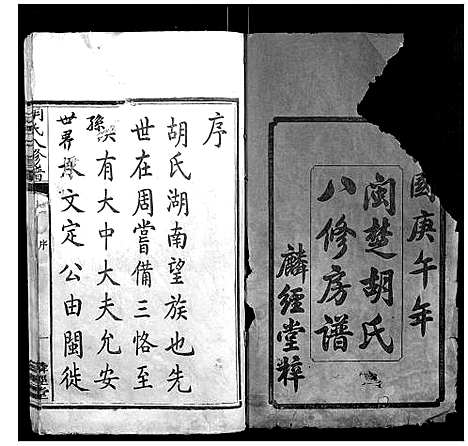 國庚午年
閩楚胡氏
八修房譜
麟經堂粹
序
胡氏湖南望族也先
世在周嘗備三恪至
有大中大夫允安
孫
世界
文定公由閩徙
胡氏八修譜
序
一
麟經堂